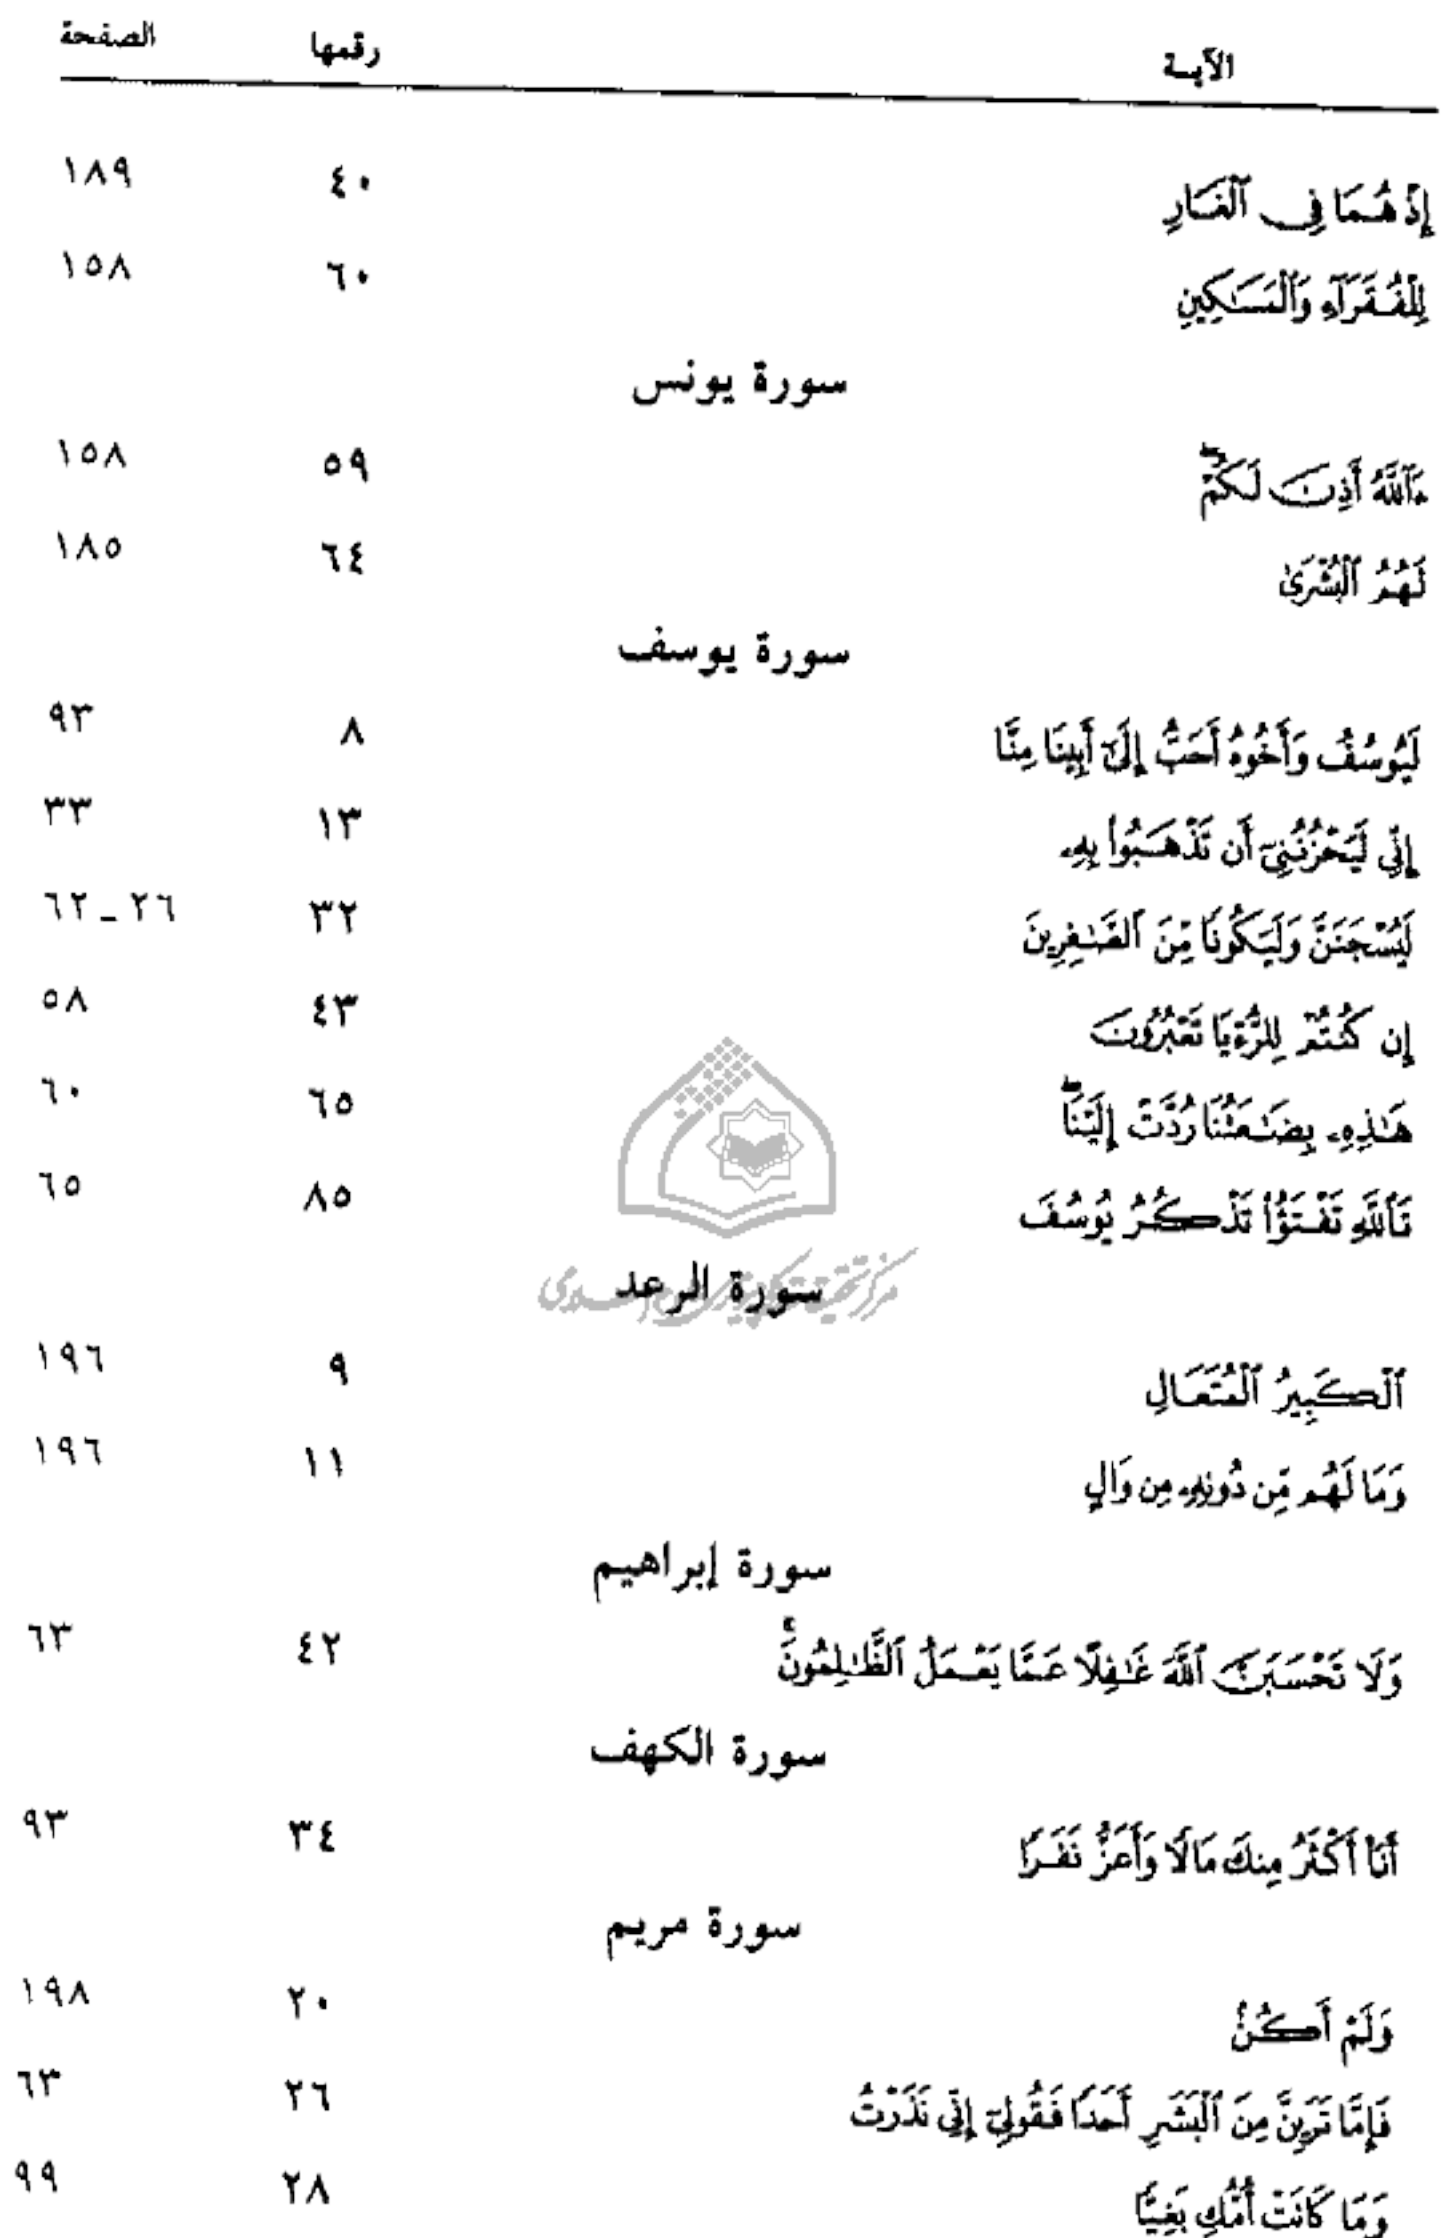 الآيـة رقمها الصفحة
إِذْ هُمَا فِى ٱلْغَارِ ٤٠ ١٨٩
لِلْفُقَرَآءِ وَٱلْمَسَـٰكِينِ ٦٠ ١٥٨
سورة يونس
ءَآللَّهُ أَذِنَ لَكُمْ ۖ ٥٩ ١٥٨
لَهُمُ ٱلْبُشْرَىٰ ٦٤ ١٨٥
سورة يوسف
لَيُوسُفُ وَأَخُوهُ أَحَبُّ إِلَىٰٓ أَبِينَا مِنَّا ٨ ٩٣
إِنِّى لَيَحْزُنُنِىٓ أَن تَذْهَبُوا۟ بِهِۦ ١٣ ٣٣
لَيُسْجَنَنَّ وَلَيَكُونًا مِّنَ ٱلصَّـٰغِرِينَ ٣٢ ٢٦ ـ ٦٢
إِن كُنتُمْ لِلرُّءْيَا تَعْبُرُونَ ٤٣ ٥٨
هَـٰذِهِۦ بِضَـٰعَتُنَا رُدَّتْ إِلَيْنَا ۖ ٦٥ ٦٠
تَٱللَّهِ تَفْتَؤُا۟ تَذْكُرُ يُوسُفَ ٨٥ ٦٥
سورة الرعد
ٱلْكَبِيرُ ٱلْمُتَعَالِ ٩ ١٩٦
وَمَا لَهُم مِّن دُونِهِۦ مِن وَالٍ ١١ ١٩٦
سورة إبراهيم
وَلَا تَحْسَبَنَّ ٱللَّهَ غَـٰفِلًا عَمَّا يَعْمَلُ ٱلظَّـٰلِمُونَ ۚ ٤٢ ٦٣
سورة الكهف
أَنَا۠ أَكْثَرُ مِنكَ مَالًا وَأَعَزُّ نَفَرًا ٣٤ ٩٣
سورة مريم
وَلَمْ أَكُنْ ٢٠ ١٩٨
فَإِمَّا تَرَيِنَّ مِنَ ٱلْبَشَرِ أَحَدًا فَقُولِىٓ إِنِّى نَذَرْتُ ٢٦ ٦٣
وَمَا كَانَتْ أُمُّكِ بَغِيًّا ٢٨ ٩٩